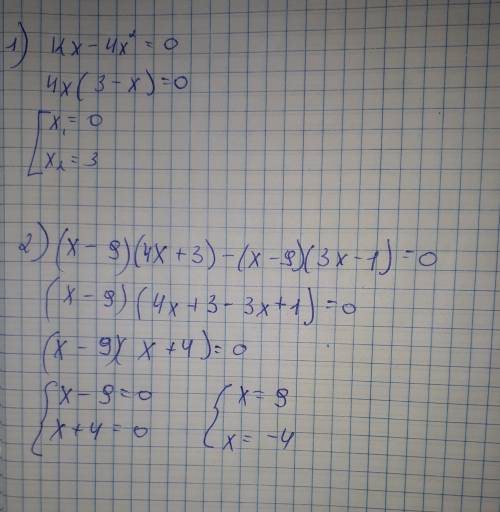 1) 12x - 4x² = 0
4x(3 - x) = 0
[x₁ = 0
x₂ = 3
2) (x - 9)(4x + 3) - (x - 9)(3x - 1) = 0
(x - 9)(4x + 3 - 3x + 1) = 0
(x - 9)(x + 4) = 0
{x - 9 = 0 {x = 9
x + 4 = 0 x = -4